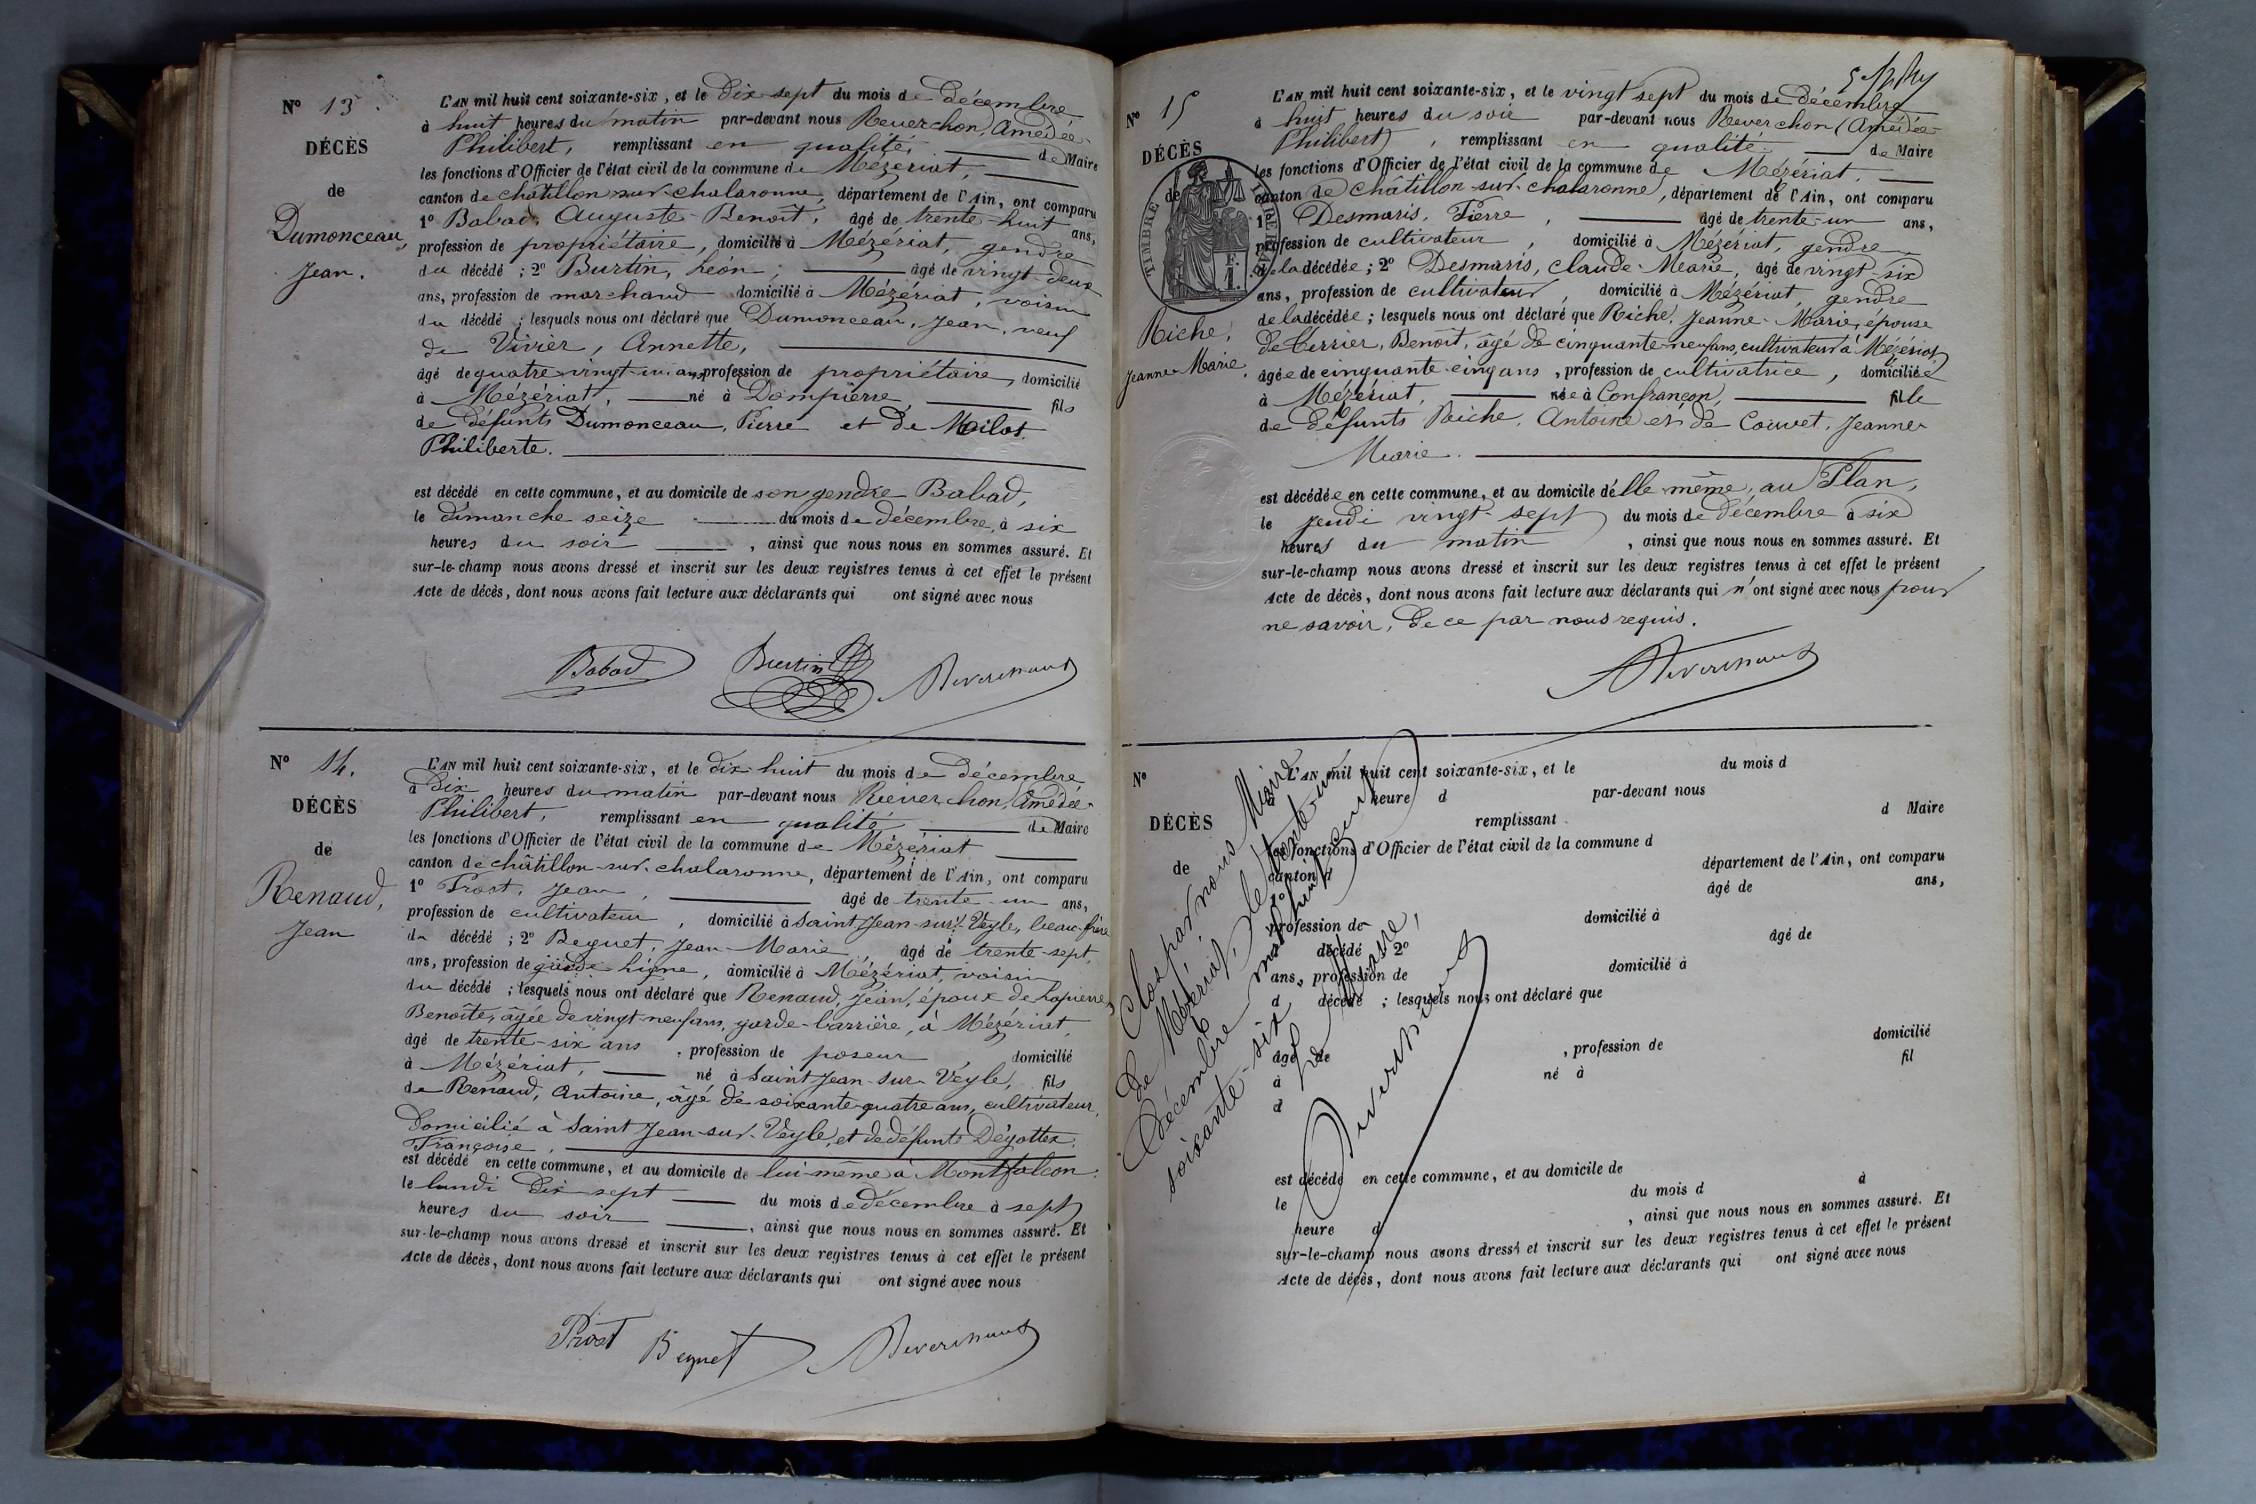 N° 13.
DÉCÈS
de
Dumonceau,
Jean.
L'AN mil huit cent soixante-six, et le dix-sept du mois de décembre
à huit heures du matin par-devant nous Reverchon, Amédée-
Philibert, remplissant en qualité, de Maire
les fonctions d'Officier de l'état civil de la commune de Mézériat,
canton de châtillon-sur-chalaronne, département de l'Ain, ont comparu
1° Babad, Auguste-Benoît, âgé de trente-huit ans,
profession de propriétaire, domicilié à Mézériat, gendre
du décédé ; 2° Burtin, Léon, âgé de vingt-deux
ans, profession de marchand domicilié à Mézériat, voisin
du décédé ; lesquels nous ont déclaré que Dumonceau, Jean, veuf
de Vivier, Annette,
âgé de quatre-vingt-un ans, profession de propriétaire, domicilié
à Mézériat, né à Dompierre, fils
de défunts Dumonceau, Pierre et de Moilot,
Philiberte.
est décédé en cette commune, et au domicile de son gendre Babad,
le dimanche seize du mois de décembre, à six
heures du soir, ainsi que nous nous en sommes assuré. Et
sur-le-champ nous avons dressé et inscrit sur les deux registres tenus à cet effet le présent
Acte de décès, dont nous avons fait lecture aux déclarants qui ont signé avec nous
Babad Burtin Reverchon
N° 14.
DÉCÈS
de
Renaud,
Jean
L'AN mil huit cent soixante-six, et le dix-huit du mois de décembre
à dix heures du matin par-devant nous Reverchon, Amédée-
Philibert, remplissant en qualité de Maire
les fonctions d'Officier de l'état civil de la commune de Mézériat
canton de châtillon-sur-chalaronne, département de l'Ain, ont comparu
1° Prost, Jean, âgé de trente-un ans,
profession de cultivateur, domicilié à Saint Jean-sur-Veyle, beau-frère
du décédé ; 2° Bequet, Jean-Marie, âgé de trente-sept,
ans, profession de garde-ligne, domicilié à Mézériat, voisin
du décédé ; lesquels nous ont déclaré que Renaud, Jean, époux de Lapierre,
Benoîte, âgée de vingt-neuf ans, garde-barrière, à Mézériat,
âgé de trente-six ans, profession de poseur domicilié
à Mézériat, né à Saint Jean-sur-Veyle, fils
de Renaud, Antoine, âgé de soixante-quatre ans, cultivateur,
domicilié à Saint Jean-sur-Veyle, et de défunte Dégottex,
Françoise,
est décédé en cette commune, et au domicile de lui-même à Montfalcon.
le lundi dix-sept du mois de décembre à sept
heures du soir, ainsi que nous nous en sommes assuré. Et
sur-le-champ nous avons dressé et inscrit sur les deux registres tenus à cet effet le présent
Acte de décès, dont nous avons fait lecture aux déclarants qui ont signé avec nous
Prost Bequet Reverchon
N° 15
DÉCÈS
de
TIMBRE IMPERIAL
F. 1.
Riche,
Jeanne-Marie.
L'AN mil huit cent soixante-six, et le vingt sept du mois de décembre
à huit heures du soir par-devant nous Reverchon (Amédée-
Philibert), remplissant en qualité de Maire
les fonctions d'Officier de l'état civil de la commune de Mézériat,
canton de châtillon-sur-chalaronne, département de l'Ain, ont comparu
1° Desmaris, Pierre, âgé de trente-un ans,
profession de cultivateur, domicilié à Mézériat, gendre
de la décédée ; 2° Desmaris, claude-Marie, âgé de vingt-six
ans, profession de cultivateur, domicilié à Mézériat, gendre
de la décédée ; lesquels nous ont déclaré que Riche, Jeanne-Marie, épouse
de Cerrier, Benoît, âgé de cinquante-neuf ans, cultivateur à Mézériat,
âgée de cinquante-cinq ans, profession de cultivatrice, domiciliée
à Mézériat, née à Confrançon, fille
de défunts Riche, Antoine et de Couvet, Jeanne-
Marie.
est décédée en cette commune, et au domicile d'elle-même, au Plan,
le jeudi vingt-sept du mois de décembre à six
heures du matin, ainsi que nous nous en sommes assuré. Et
sur-le-champ nous avons dressé et inscrit sur les deux registres tenus à cet effet le présent
Acte de décès, dont nous avons fait lecture aux déclarants qui n'ont signé avec nous pour
ne savoir, de ce par nous requis.
Reverchon
N°
DÉCÈS
de
L'AN mil huit cent soixante-six, et le du mois d
heure d par-devant nous
remplissant d Maire
les fonctions d'Officier de l'état civil de la commune d
canton d département de l'Ain, ont comparu
1° âgé de ans,
profession de domicilié à
décédé 2° âgé de
ans, profession de domicilié à
d décédé ; lesquels nous ont déclaré que
âgé de , profession de domicilié
à né à fil
d
est décédé en cette commune, et au domicile de
le du mois d à
heure d , ainsi que nous nous en sommes assuré. Et
sur-le-champ nous avons dressé et inscrit sur les deux registres tenus à cet effet le présent
Acte de décès, dont nous avons fait lecture aux déclarants qui ont signé avec nous
Clos par nous Maire
de Mézériat, le trente-un
Décembre mil huit cent
soixante-six
Le Maire,
Reverchon